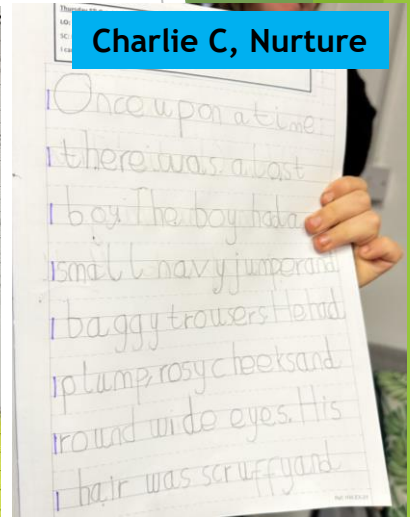 Charlie C, Nurture
Thursday
LO:
SC:
I ca
Once upon a time
there was a lost
boy. The boy had a
small navy jumper and
baggy trousers. He had
plump, rosy cheeks and
round wide eyes. His
hair was scruffy and